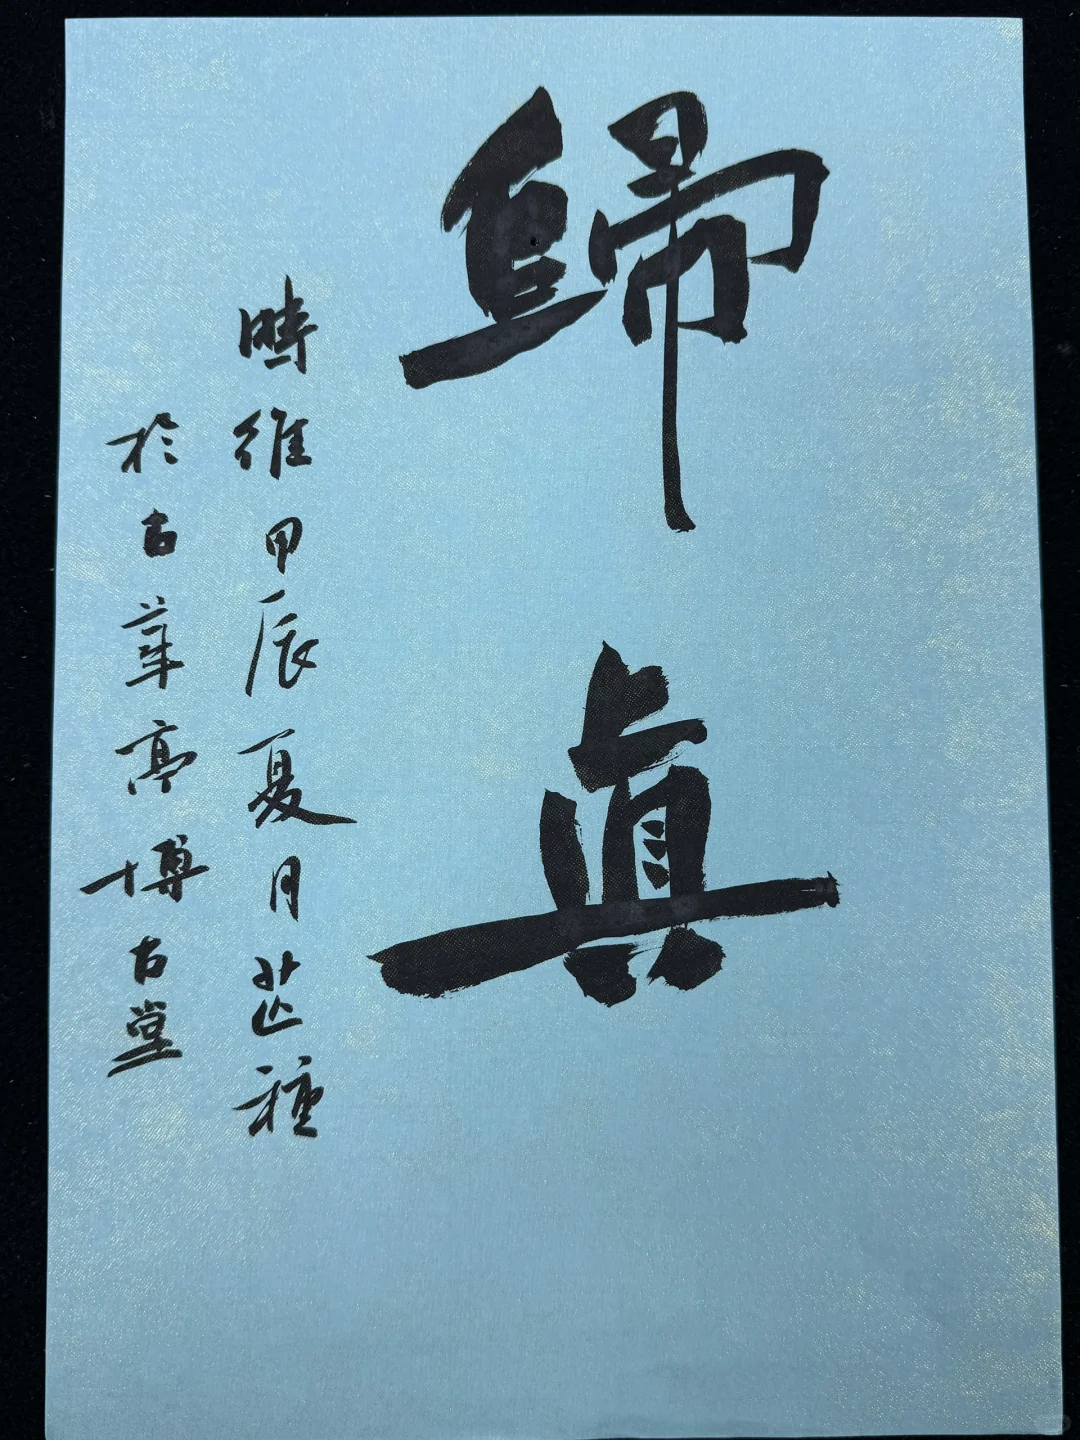 歸真
時維甲辰夏月芒種
於古華亭博古堂